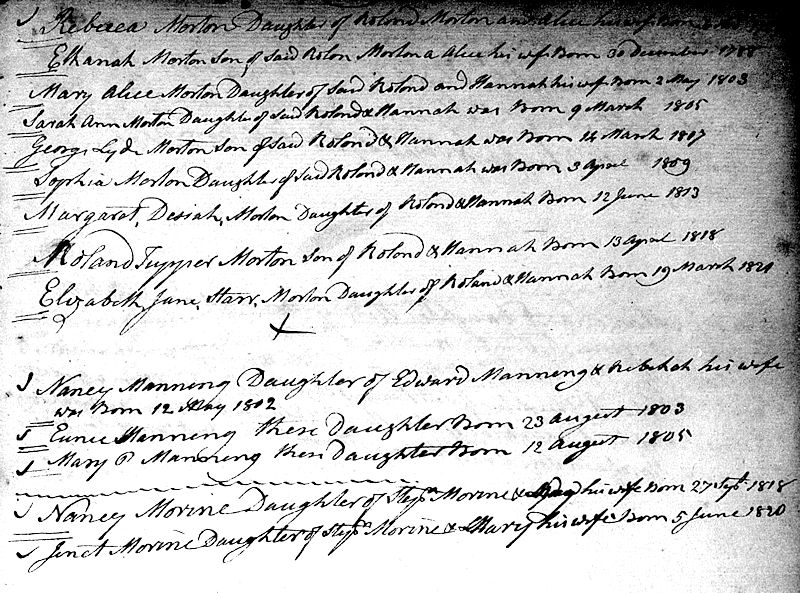 Rebecca Morton Daughter of Rolond Morton and Alice his wife Born
Elkanah Morton Son of Said Rolon Morton & Alice his wife Born 30 December 1788
Mary Alice Morton Daughter of Said Rolond and Hannah his wife Born 2 May 1803
Sarah Ann Morton Daughter of Said Rolond & Hannah was Born 9 March 1805
George Morton Son of Said Rolond & Hannah was Born 14 March 1807
Sophia Morton Daughter of Said Rolond & Hannah was Born 3 April 1809
Margarat, Desiah, Morton Daughter of Rolond & Hannah Born 12 June 1813
Roland Tupper Morton Son of Rolond & Hannah Born 13 April 1818
Elizabeth Jane, Starr, Morton Daughter of Rolond & Hannah Born 19 March 1821
X
Nancy Manning Daughter of Edward Manning & Rebekah his wife
was Born 12 May 1802
Eunice Manning there Daughter Born 23 august 1803
Mary P Manning there Daughter Born 12 august 1805
Nancy Morine Daughter of Stepn Morine & Mary his wife Born 27 Sept 1818
Jenet Morine Daughter of Stepn Morine & Mary his wife Born 5 June 1820